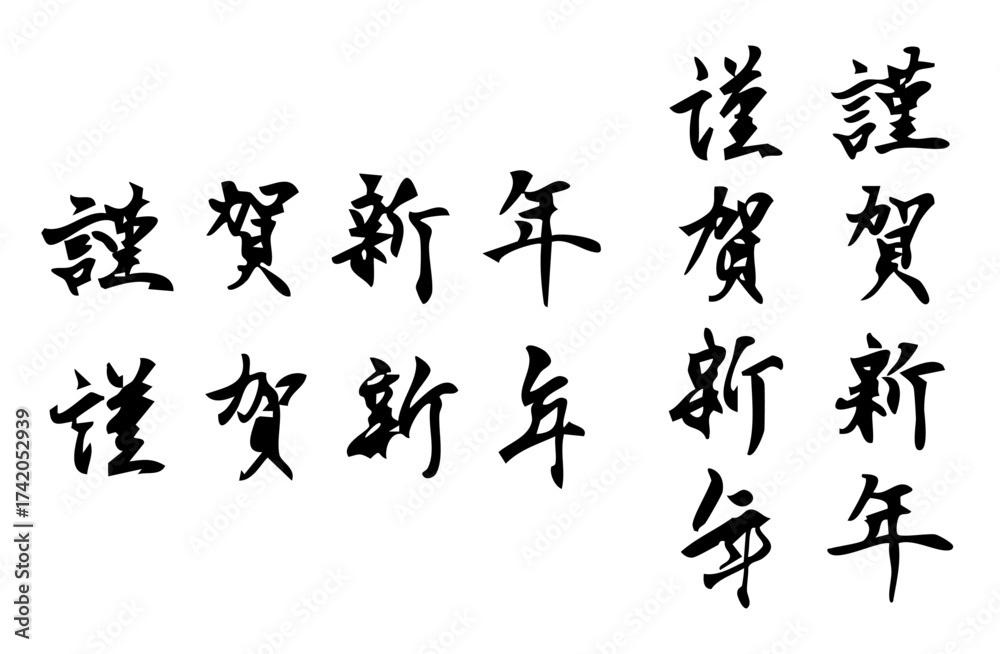 謹賀新年
謹賀新年
謹賀新年
謹賀新年
Adobe Stock | #1742052939
Adobe Stock